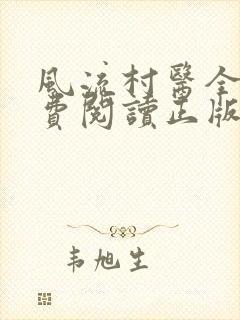 風流村醫全
費閱讀正版
韦旭生